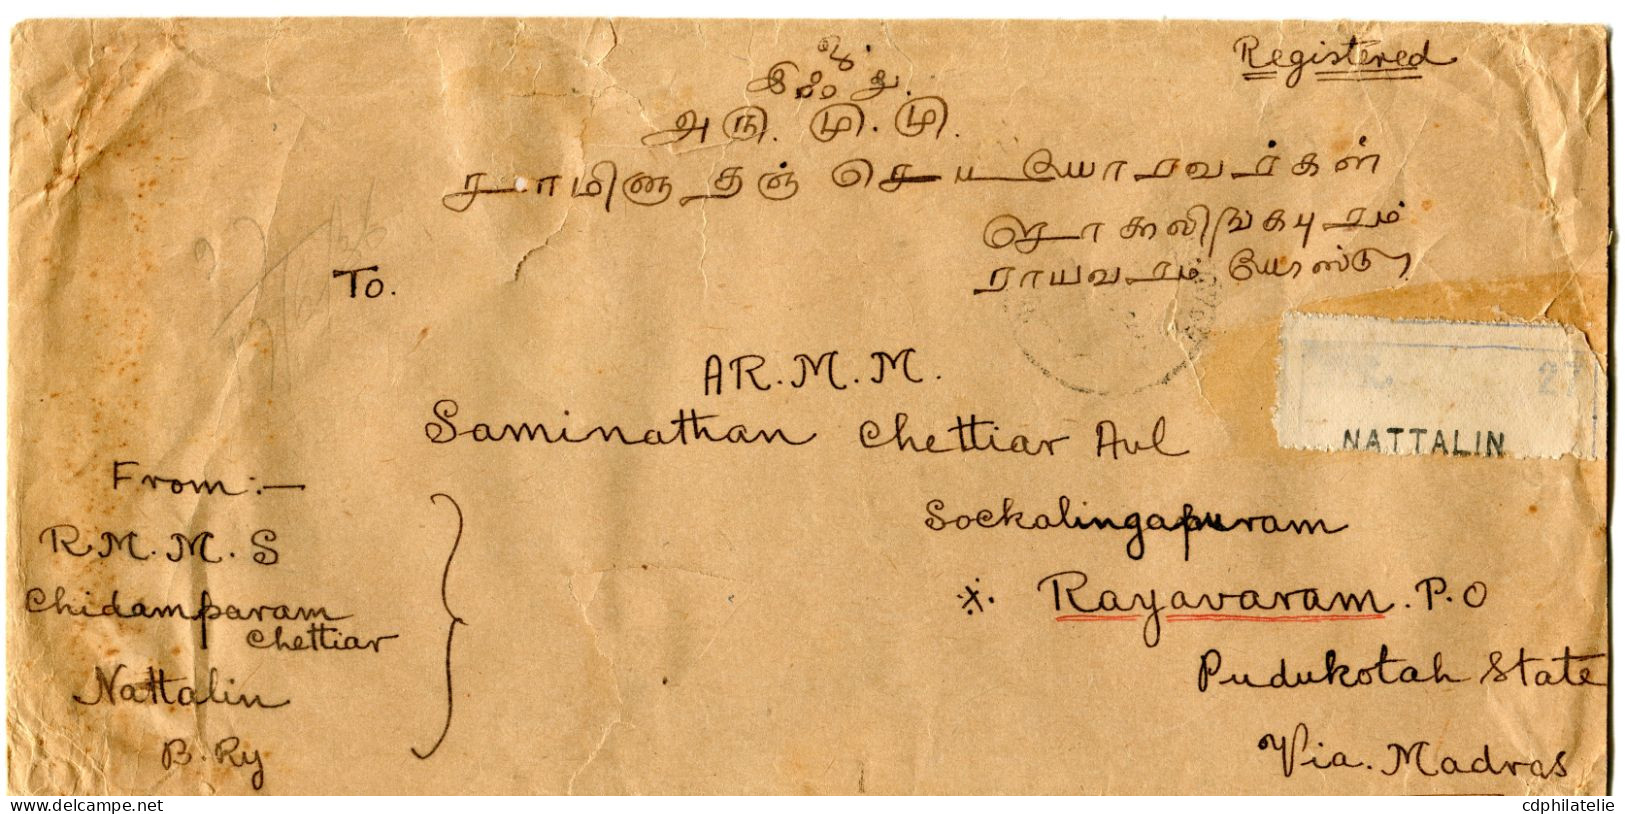 Registered
உ
இஃது
அரு. மு. மு.
சாமினாதஞ் செ யபோரவர்கள்
சொகலிங்கபுரம்
ராயவரம் போஸ்டு
To.
AR. M. M.
Saminathan Chettiar Avl
Sockalingapuram
Rayavaram. P.O
Pudukotah State
Via. Madras
R. 27
NATTALIN
From:—
RM. M. S
Chidamparam
Chettiar
Nattalin
B. Ry
cdphilatelie